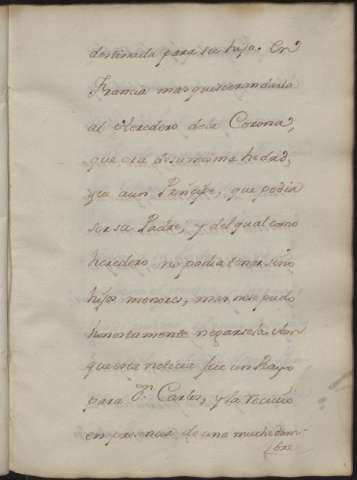 destinada para su hija. En
Francia mas quisieran darla
al Heredero de la Corona,
que era de su misma hedad,
y a aun Principe, que podia
ser su Padre, y del qual como
heredero no podia tener sino
hijos menores, mas no se pudo
honestamente negarsela. Aun
que esta noticia fue un Rayo
para Dn. Carlos, y la recivio
en presencia de una muchedum-
bre